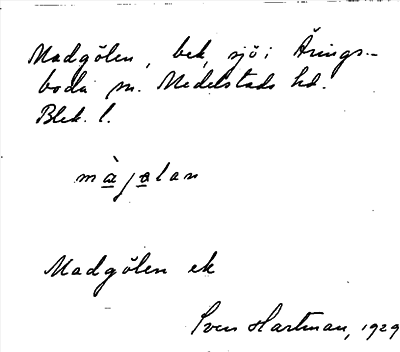 Madgölen, bek, sjö i Årings-
boda sn. Medelstads hd.
Blek. l.
màjalan
Madgölen ek
Sven Hartman, 1929